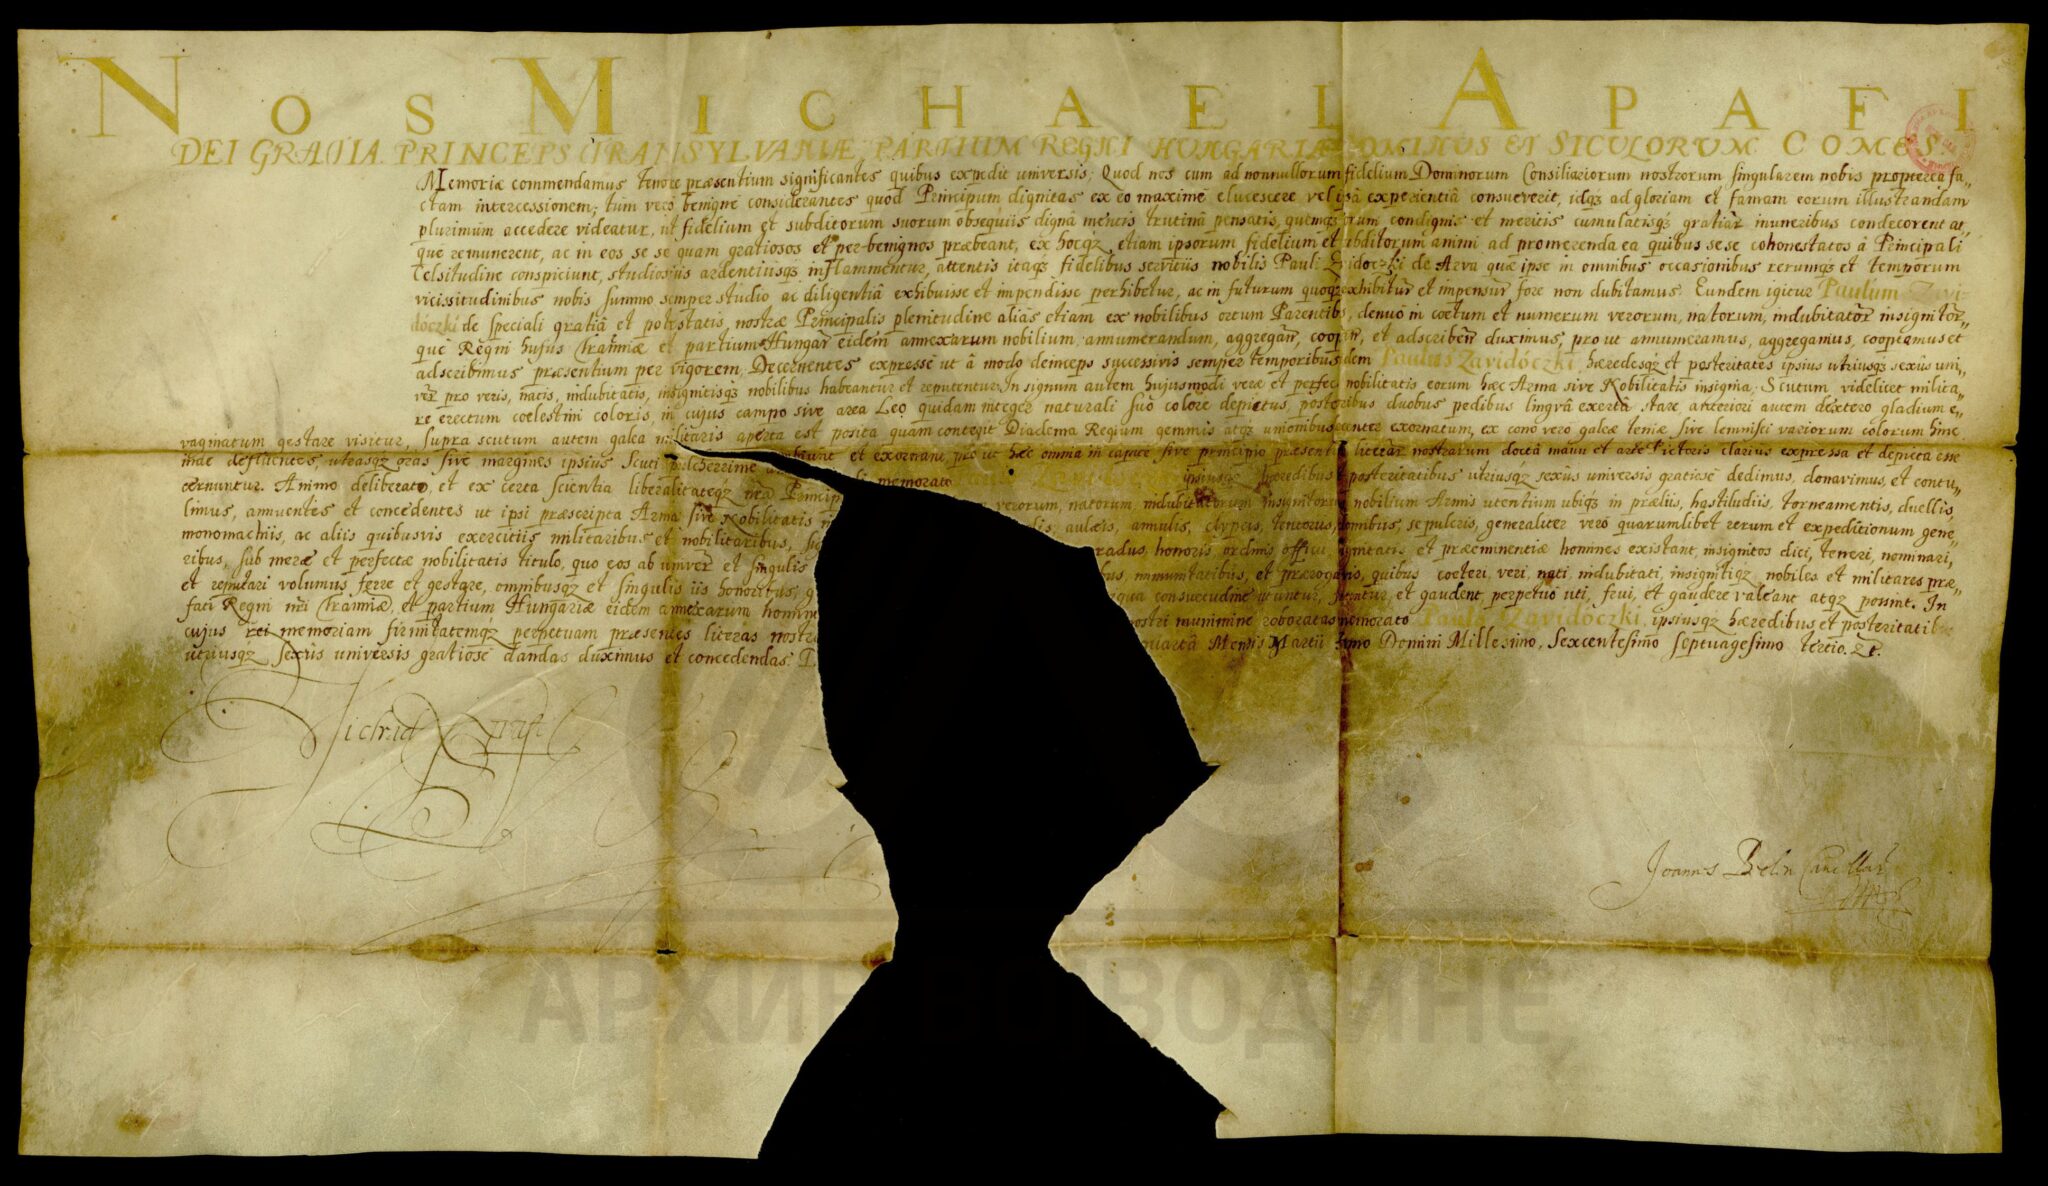 NOS MICHAEL APAFI
DEI GRATIA PRINCEPS TRANSYLVANIÆ PARTIUM REGNI HUNGARIÆ DOMINUS ET SICULORUM COMES
Memoriæ commendamus tenore præsentium significantes quibus expedit universis; Quod nos cum ad nonnullorum fidelium Dominorum Consiliariorum nostrorum singularem nobis propterea fa„
ctam intercessionem; tum verò benignè considerantes quod Principum dignitas ex eo maximè elucescere vel ipsâ experientiâ consueverit, idqz ad gloriam et famam eorum illustrandam
plurimum accedere videatur, ut fidelium et subditorum suorum obsequiis dignâ mentis trutinâ pensatis, condignis et meritis cumulatisqz gratiar muneribus condecorent at„
que remunerent, ac in eos se se quam gratiosos et per-benignos præbeant, ex hocqz etiam ipsorum fidelium et subditorum animi ad promerenda ea quibus sese cohonestatos â Principali
Celsitudine conspiciunt, studiosiùs ardentiusqz inflammentur, attentis itaqz fidelibus servitiis nobilis Pauli Zavidoczki de Arva quæ ipse in omnibus occasionibus rerumqz et temporum
vicissitudinibus nobis summo semper studio ac diligentiâ exhibuisse et impendisse perhibetur, ac in futurum quoqz exhibitur et impensur fore non dubitamus. Eundem igitur Paulum Zavi-
dóczki de speciali gratiâ et potestatis, nostræ Principalis plenitudine aliàs etiam ex nobilibus ortum Parentibs, denuo in coetum et numerum verorum, natorum, indubitator insignitor„
que Regni hujus Tranniæ et partium Hungar eidem annexarum nobilium, annumerandum, aggregan, cooptan, et adscriben duximus; pro ut annumeramus, aggregamus, cooptamus et
adscribimus præsentium per vigorem. Decernentes expressè ut â modo deinceps successivis semper temporibus idem Paulus Zavidóczki, hæredesqz et posteritates ipsius utriusqz sexûs uni„
ver pro veris, natis, indubitatis, insignitisqz nobilibus habeantur et reputentur. In signum autem hujusmodi veræ et perfec nobilitatis eorum hæc Arma sive Nobilitatis insignia; Scutum videlicet milita„
re erectum coelestini coloris, in cujus campo sive area Leo quidam integer naturali suo colore depictus, posteribus duobus pedibus linguâ exertâ stare, anteriori autem dextero gladium e„
vaginatum gestare visitur, supra scutum autem galea militaris aperta est posita quam contegit Diadema Regium gemmis atqz unionibus exornatum, ex cono vero galeæ teniæ sive lemnisci variorum colorum hinc
inde defluentes, utrasqz oras sive margines ipsius scuti pulcherrimè ambiunt et exornant, pro ut hæc omnia in capite sive principio præsenti literar nostrarum doctâ manu et arte Pictoris clarius expressa et depicta esse
cernuntur. Animo deliberato, et ex certa scientia liberalitateqz nrâ Princip memorato ipsiusqz hæredibus posteritatibus utriusqz sexûs universis gratiosè dedimus, donavimus, et contu„
limus, annuentes et concedentes ut ipsi præscripta Arma sive Nobilitatis in verorum, natorum, indubitatorum insignitorum nobilium Armis utentium ubiqz in præliis, hastiludiis, torneamentis, duellis,
monomachiis, ac aliis quibusvis exercitiis militaribus et nobilitaribus, aulæis, annulis, clypeis, tentoriis, domibus, sepulcris, generaliter verò quarumlibet rerum et expeditionum gene„
ribus, sub meræ et perfectæ nobilitatis titulo, quo eos ab univer et singulis radus, honoris, ordinis officii, dignitatis et præeminentiæ homines existant, insignitos dici, teneri, nominari„
et reputari volumus ferre et gestare, omnibusqz et singulis iis honoribus, bus, immunitatibus, et prærogavis, quibus coeteri, veri, nati, indubitati, insignitiqz nobiles et militares præ„
fati Regni nri Tranniæ, et partium Hungariæ eidem annexarum homin qua consuetudine utuntur, et gaudent perpetuò uti, frui, et gaudere valeant atqz possint. In
cujus rei memoriam firmitatemqz perpetuam præsentes literas nostr nostri munimine roboratas memorato Paulo Zavidóczki, ipsiusqz hæredibus et posteritatib
utriusqz sexûs universis gratiosè dandas duximus et concedendas. quartâ Mensis Martii Anno Domini Millesimo, Sexcentesimo septuagesimo tertio. &c.
Michael Apafi
Joannes Betlen Cancellar
АРХИВ ВОЈВОДИНЕ